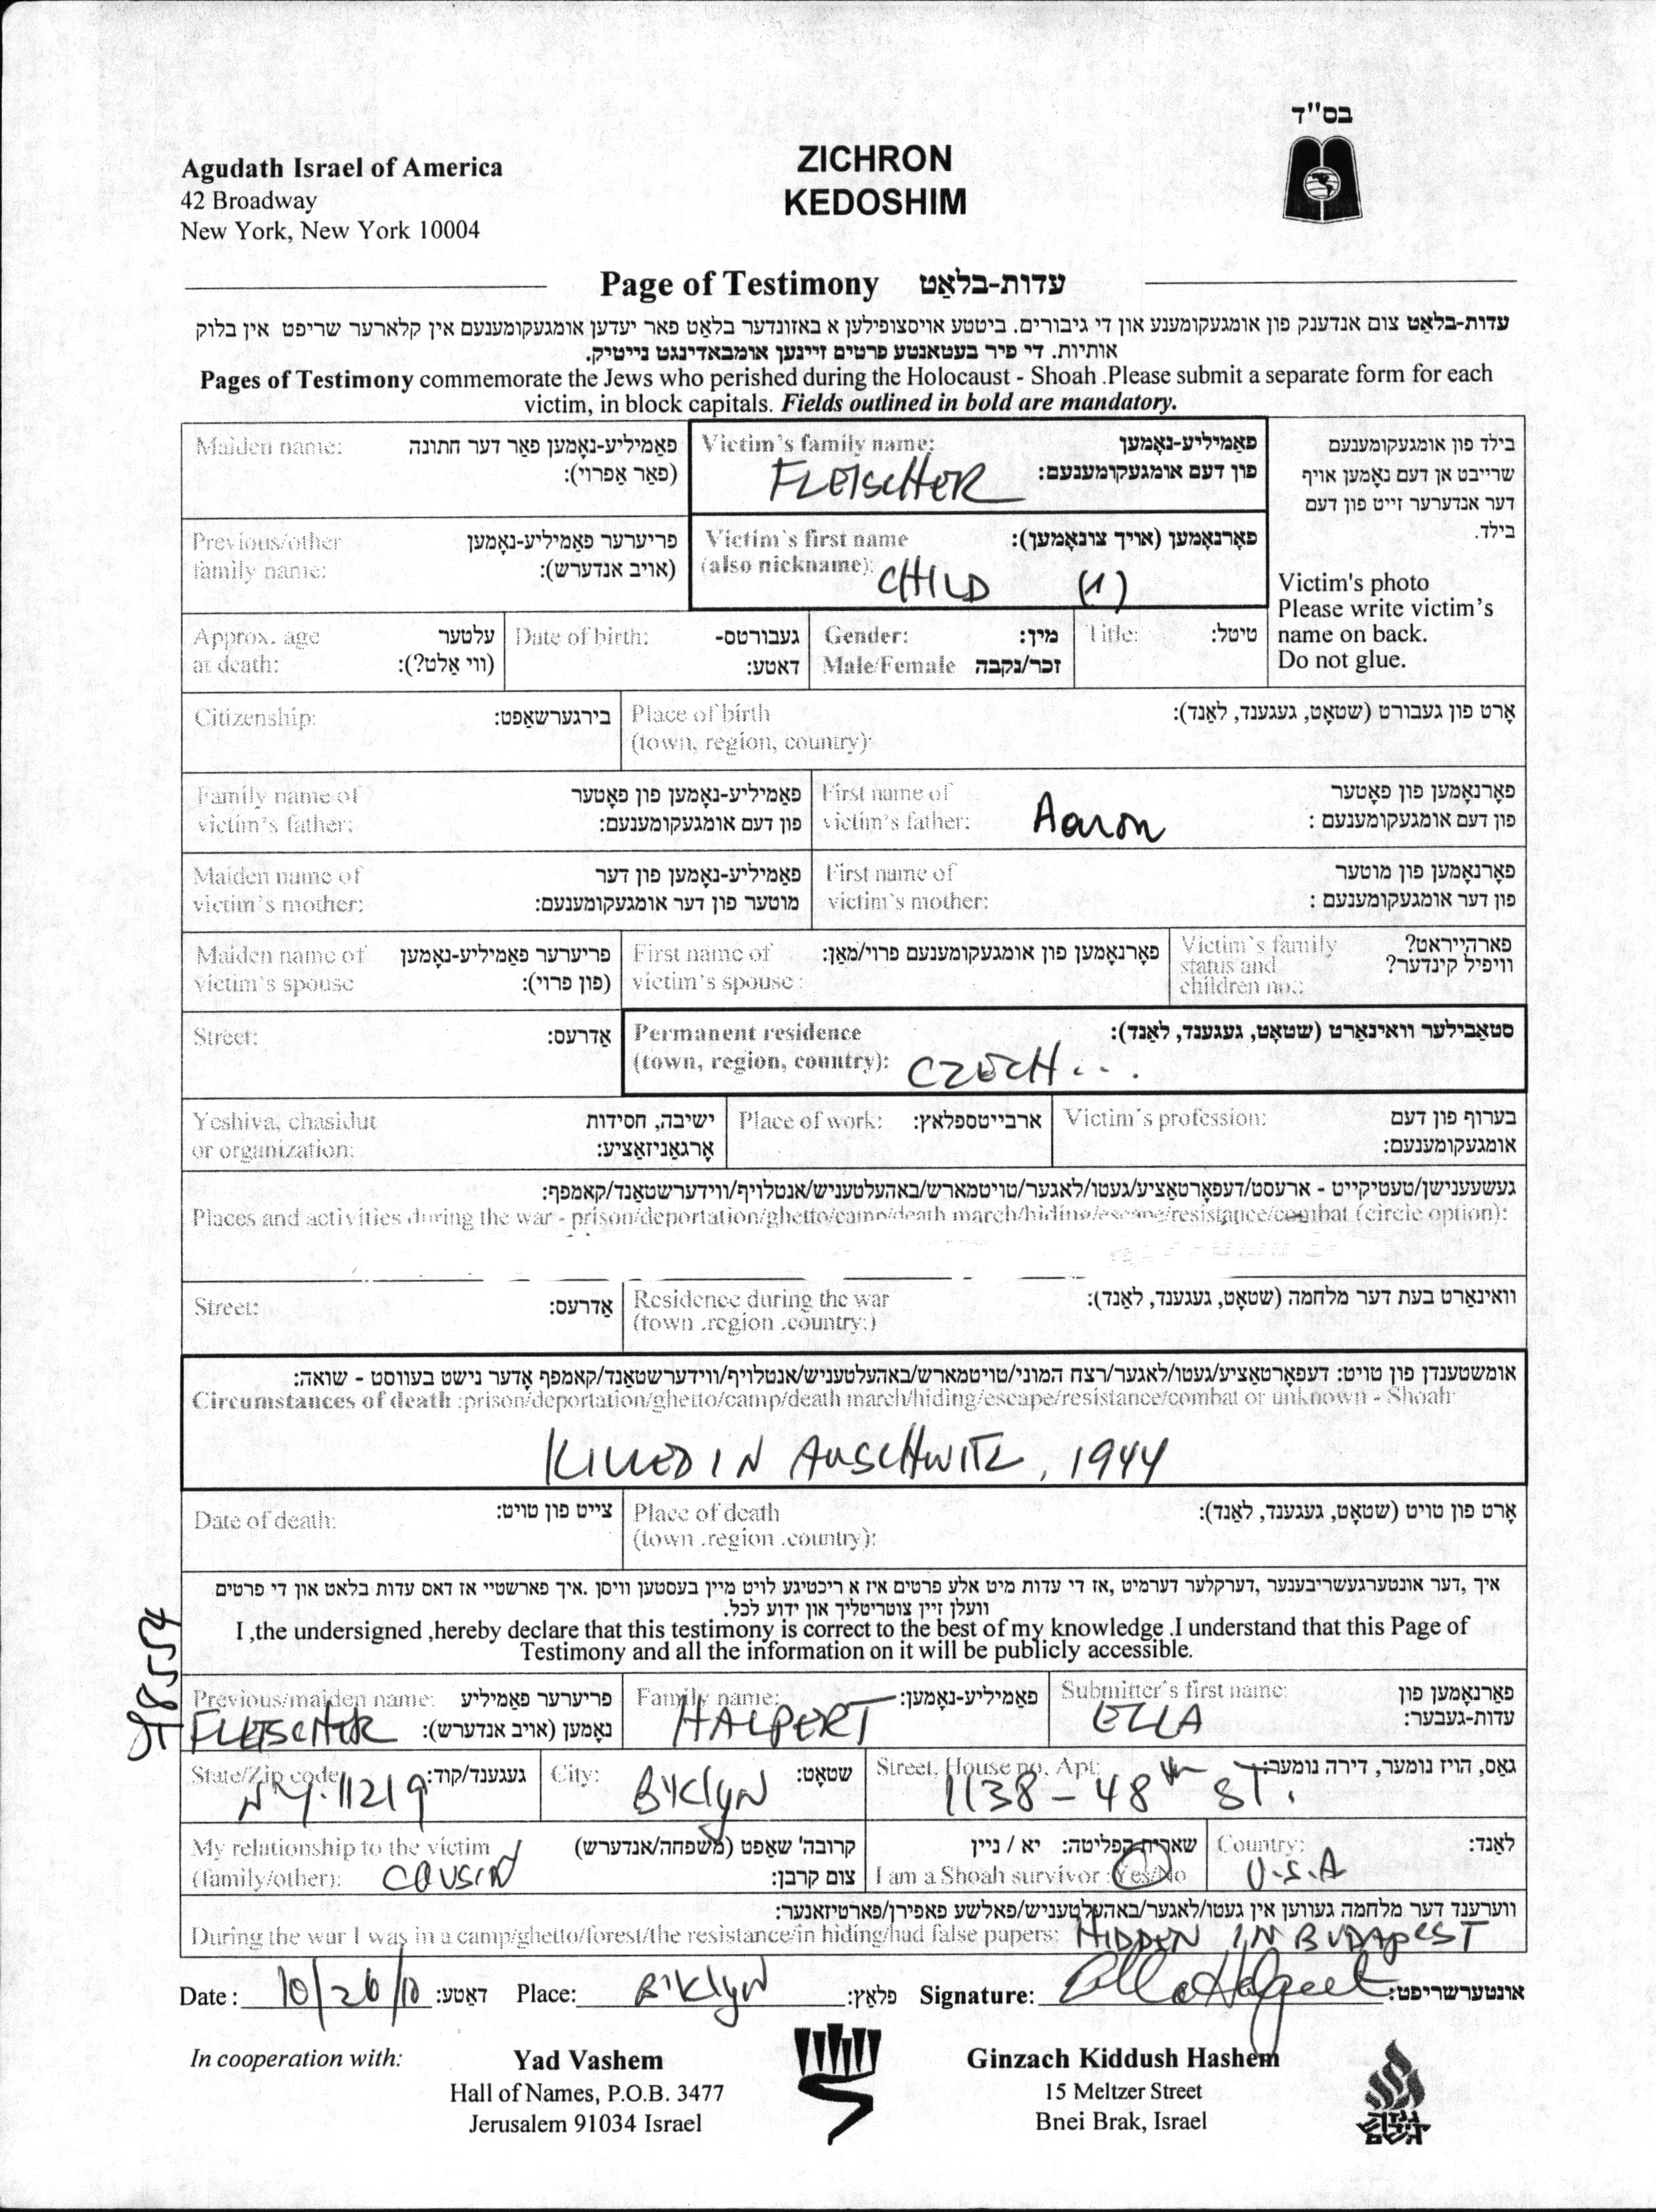 בס"ד
Agudath Israel of America
42 Broadway
New York, New York 10004
ZICHRON
KEDOSHIM
Page of Testimony עדות-בלאַט
עדות-בלאַט צום אנדענק פון אומגעקומענע און די גיבורים. ביטטע אויסצופילען א באזונדער בלאַט פאר יעדען אומגעקומענעם אין קלארער שריפט אין בלוק
אותיות. די פיר בעטאנטע פרטים זיינען אומבאדינגט נייטיק.
Pages of Testimony commemorate the Jews who perished during the Holocaust - Shoah .Please submit a separate form for each
victim, in block capitals. Fields outlined in bold are mandatory.
Maiden name: פאַמיליע-נאָמען פאַר דער חתונה
(פאַר אַפרוי):
Victim's family name: פאַמיליע-נאָמען
פון דעם אומגעקומענעם:
FLEISCHER
בילד פון אומגעקומענעם
שרייבט אן דעם נאָמען אויף
דער אנדערער זייט פון דעם
בילד.
Victim's photo
Please write victim's
name on back.
Do not glue.
Previous/other פריערער פאַמיליע-נאָמען
family name: (אויב אנדערש):
Victim's first name פאָרנאָמען (אויך צונאָמען):
(also nickname): CHILD (1)
Approx. age עלטער
at death: (ווי אַלט?):
Date of birth: געבורטס-
דאטע:
Gender: מין:
Male/Female זכר/נקבה
Title: טיטל:
Citizenship: בירגערשאַפט:
Place of birth אָרט פון געבורט (שטאָט, געגענד, לאַנד):
(town, region, country):
Family name of פאַמיליע-נאָמען פון פאָטער
victim's father: פון דעם אומגעקומענעם:
First name of פאָרנאָמען פון פאָטער
victim's father: Aaron פון דעם אומגעקומענעם :
Maiden name of פאַמיליע-נאָמען פון דער
victim's mother: מוטער פון דער אומגעקומענעם:
First name of פאָרנאָמען פון מוטער
victim's mother: פון דער אומגעקומענעם :
Maiden name of פריערער פאַמיליע-נאָמען
victim's spouse (פון פרוי):
First name of פאָרנאָמען פון אומגעקומענעם פרוי/מאַן:
victim's spouse :
Victim's family פארהייראט?
status and וויפיל קינדער?
children no.:
Street: אַדרעס:
Permanent residence סטאַבילער וואינאַרט (שטאָט, געגענד, לאַנד):
(town, region, country): CZECH...
Yeshiva, chasidut ישיבה, חסידות
or organization: אָרגאַניזאַציע:
Place of work: ארבייטספלאץ:
Victim's profession: בערוף פון דעם
אומגעקומענעם:
געשעענישן/טעטיקייט - ארעסט/דעפאָרטאַציע/געטו/לאגער/טויטמארש/באהעלטעניש/אנטלויף/ווידערשטאַנד/קאמפף:
Places and activities during the war - prison/deportation/ghetto/camp/death march/hiding/escape/resistance/combat (circle option):
Street: אַדרעס:
Residence during the war וואינאַרט בעת דער מלחמה (שטאָט, געגענד, לאַנד):
(town .region .country:)
אומשטענדן פון טויט: דעפאָרטאַציע/געטו/לאגער/רצח המוני/טויטמארש/באהעלטעניש/אנטלויף/ווידערשטאַנד/קאמפף אָדער נישט בעווסט - שואה:
Circumstances of death :prison/deportation/ghetto/camp/death march/hiding/escape/resistance/combat or unknown - Shoah
KILLED IN AUSCHWITZ, 1944
Date of death: צייט פון טויט:
Place of death אָרט פון טויט (שטאָט, געגענד, לאַנד):
(town .region .country):
איך ,דער אונטערגעשריבענער ,דערקלער דערמיט ,אז די עדות מיט אלע פרטים איז א ריכטיגע לויט מיין בעסטען וויסן .איך פארשטיי אז דאס עדות בלאט און די פרטים
וועלן זיין צוטריטליך און ידוע לכל.
I ,the undersigned ,hereby declare that this testimony is correct to the best of my knowledge .I understand that this Page of
Testimony and all the information on it will be publicly accessible.
Previous/maiden name: פריערער פאַמיליע
FLEISCHER נאָמען (אויב אנדערש):
Family name: פאַמיליע-נאָמען:
HALPERT
Submitter's first name: פאָרנאָמען פון
ELLA עדות-געבער:
State/Zip code: געגענד/קוד:
N.Y. 11219
City: שטאָט:
B'klyn
Street, House no, Apt: גאַס, הויז נומער, דירה נומער:
1138 - 48th ST.
My relationship to the victim קרובה' שאַפט (משפחה/אנדערש)
(family/other): COUSIN צום קרבן:
שארית הפליטה: יא / ניין
I am a Shoah survivor :Yes/No
Country: לאַנד:
U.S.A
ווערענד דער מלחמה געווען אין געטו/לאגער/באהעלטעניש/פאלשע פאפירן/פארטיזאנער:
During the war I was in a camp/ghetto/forest/the resistance/in hiding/had false papers: HIDDEN IN BUDAPEST
Date : 10/26/10 דאטע: Place: B'klyn פלאץ: Signature: Ella Halpert אונטערשריפט:
In cooperation with:
Yad Vashem
Hall of Names, P.O.B. 3477
Jerusalem 91034 Israel
Ginzach Kiddush Hashem
15 Meltzer Street
Bnei Brak, Israel
גנזך
קידוש
השם